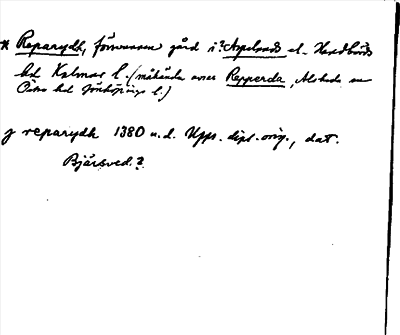 * Reparydh, försvunnen gård i ? Aspelands el. Handbörds
hd Kalmar l. (måhända avses Repperda, Alseda sn
Östra hd Jönköpings l.)
j reparydh 1380 u.d. Upps. dipl. orig., dat.
Bjärsved. ?